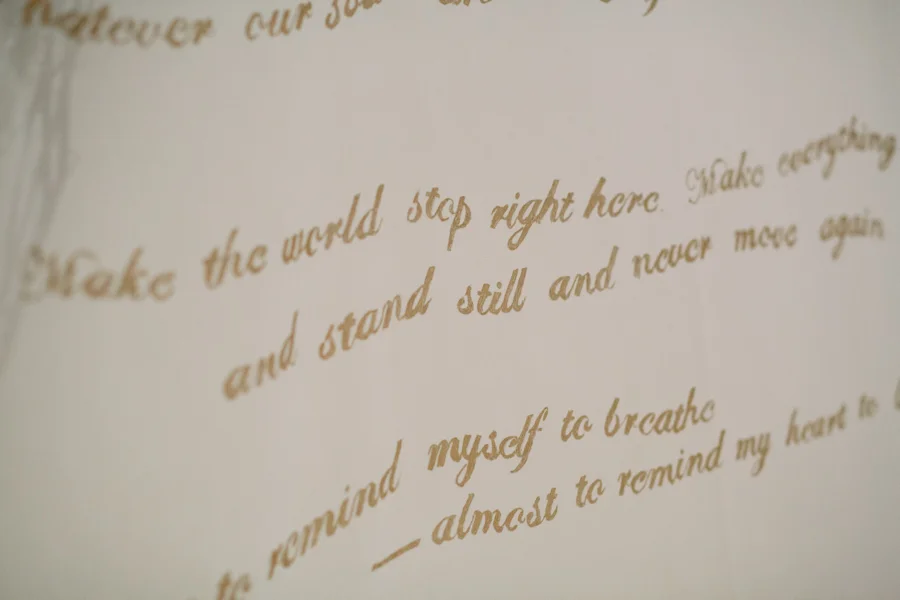 our
Make the world stop right here. Make everything
and stand still and never move again
to remind myself to breathe
— almost to remind my heart to